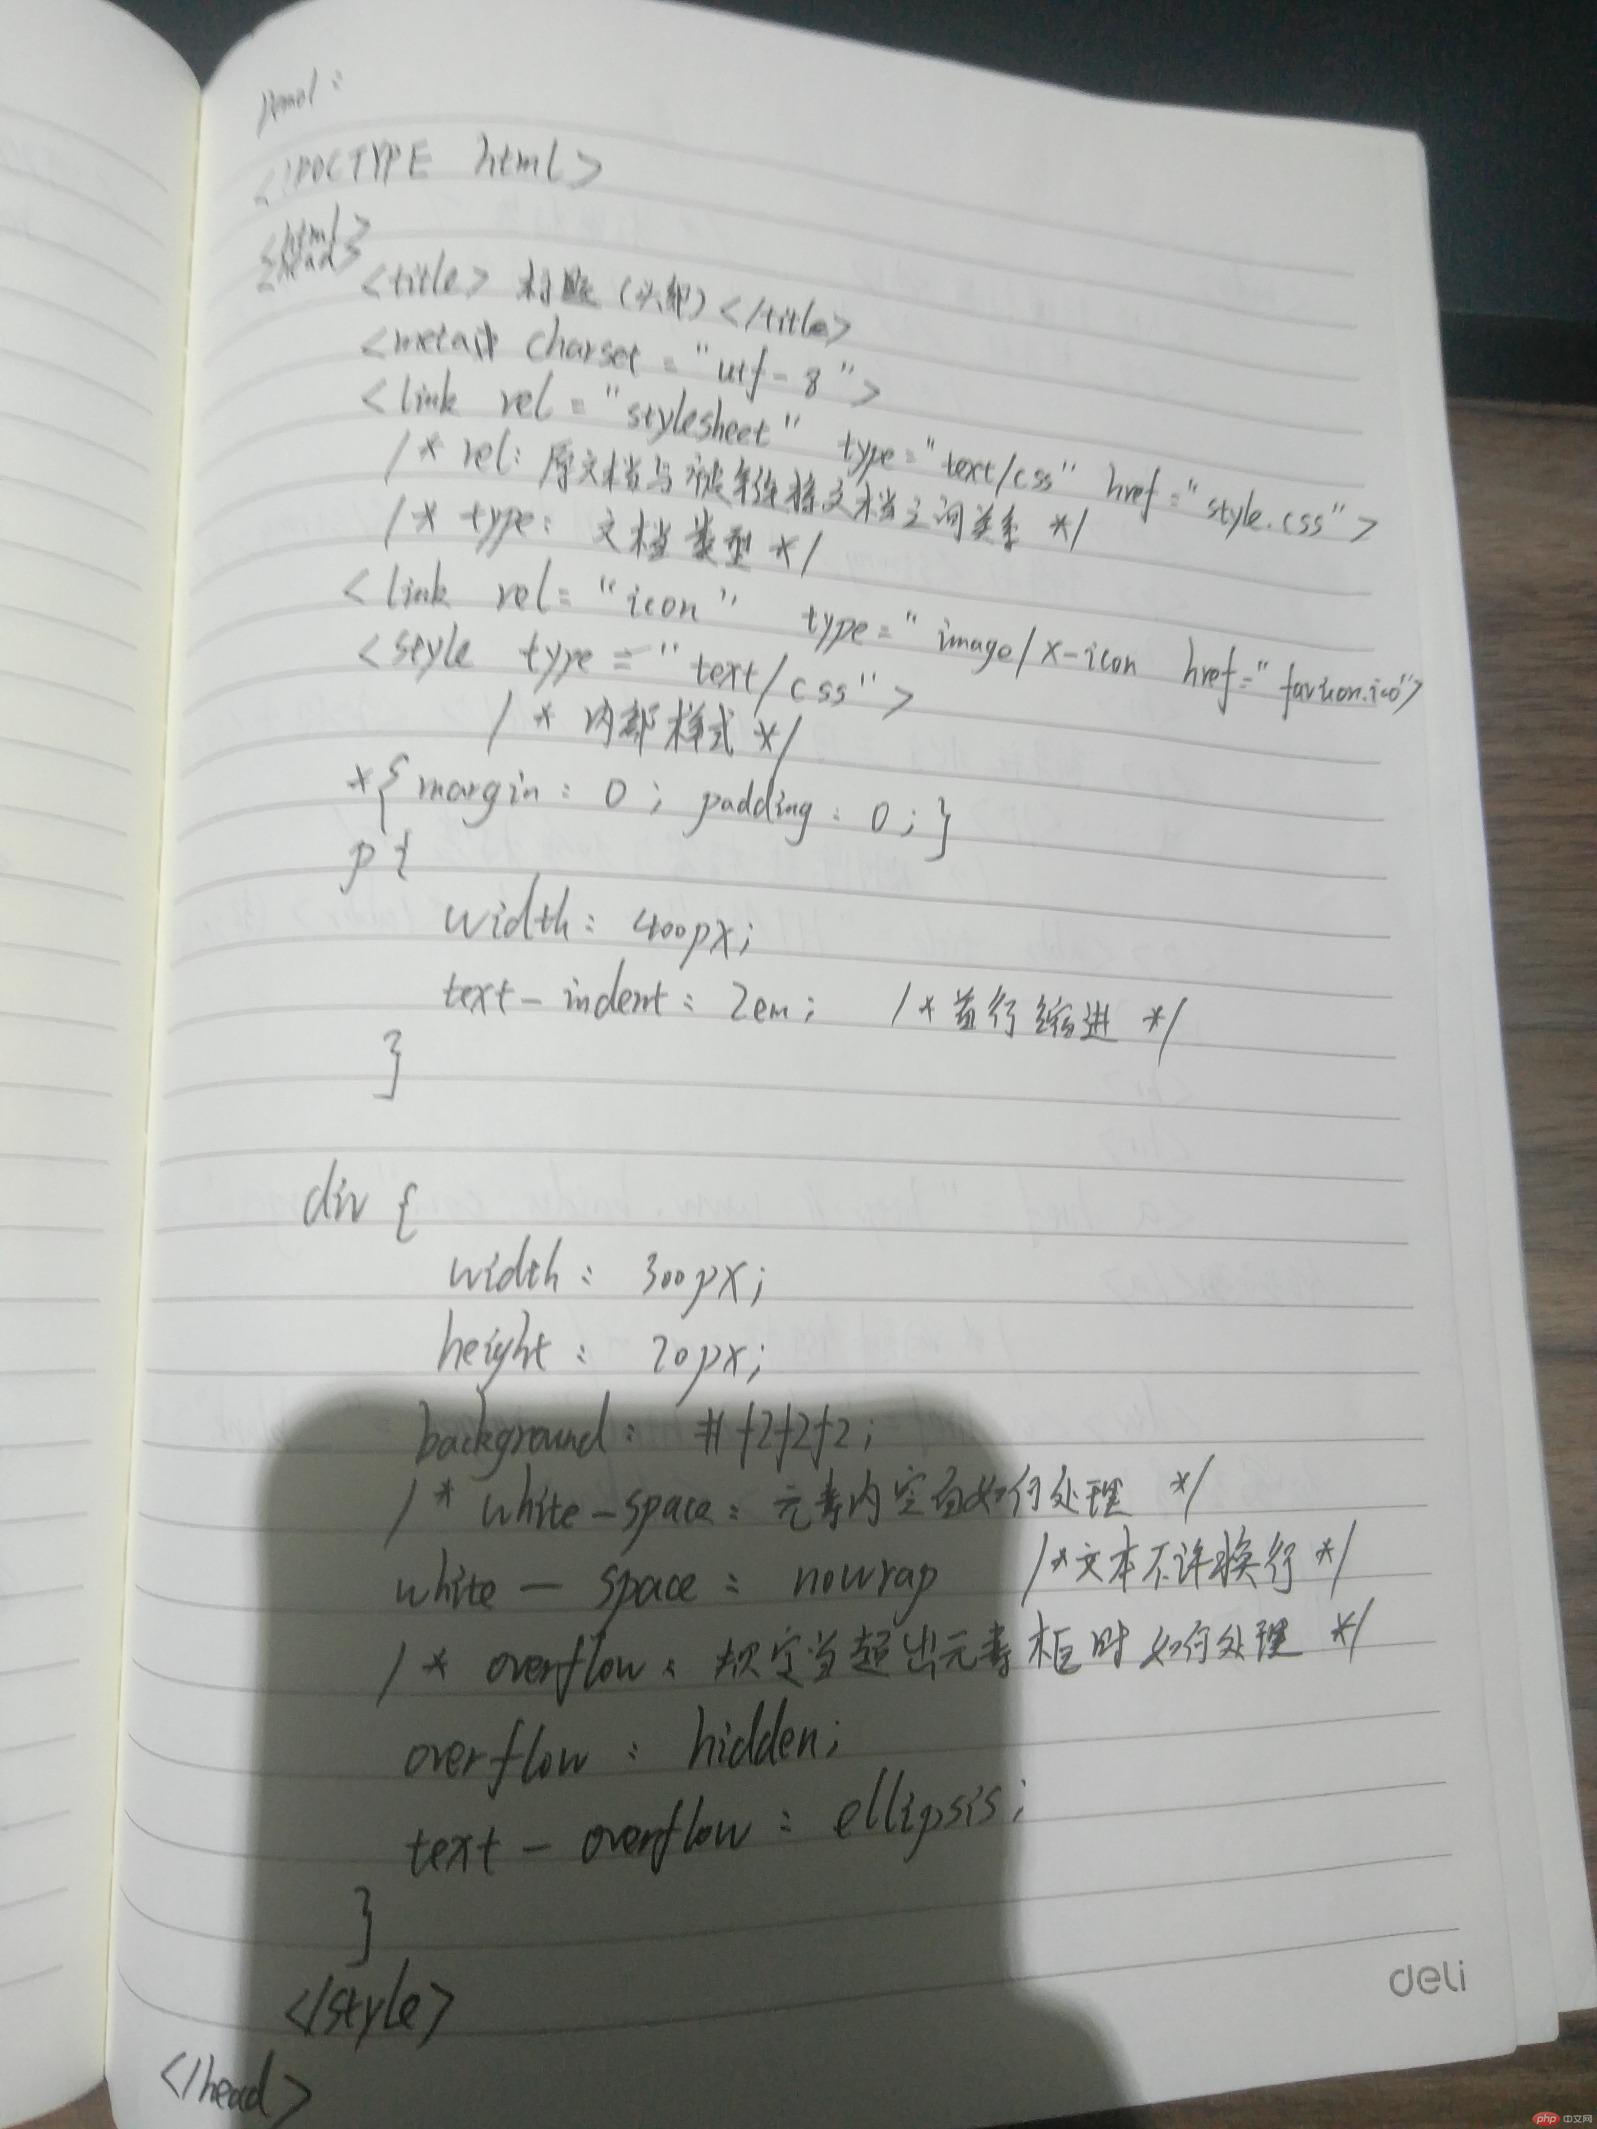 <!DOCTYPE html>
<html>
<head>
<title> 标题 (头部) </title>
<meta charset = "utf-8">
<link rel = "stylesheet" type = "text/css" href = "style.css">
/* rel: 原文档与被连接文档之间关系 */
/* type: 文档类型 */
<link rel = "icon" type = "image/x-icon href = "favicon.ico">
<style type = "text/css">
/* 内部样式 */
*{ margin : 0 ; padding : 0 ; }
p {
width : 400px;
text-indent : 2em; /* 首行缩进 */
}
div {
width : 300px;
height : 20px;
background : #f2f2f2;
/* white-space : 元素内空白如何处理 */
white-space : nowrap /*文本不许换行 */
/* overflow : 规定当超出元素框时如何处理 */
overflow : hidden;
text-overflow : ellipsis;
}
</style>
</head>
deli
php 中文网